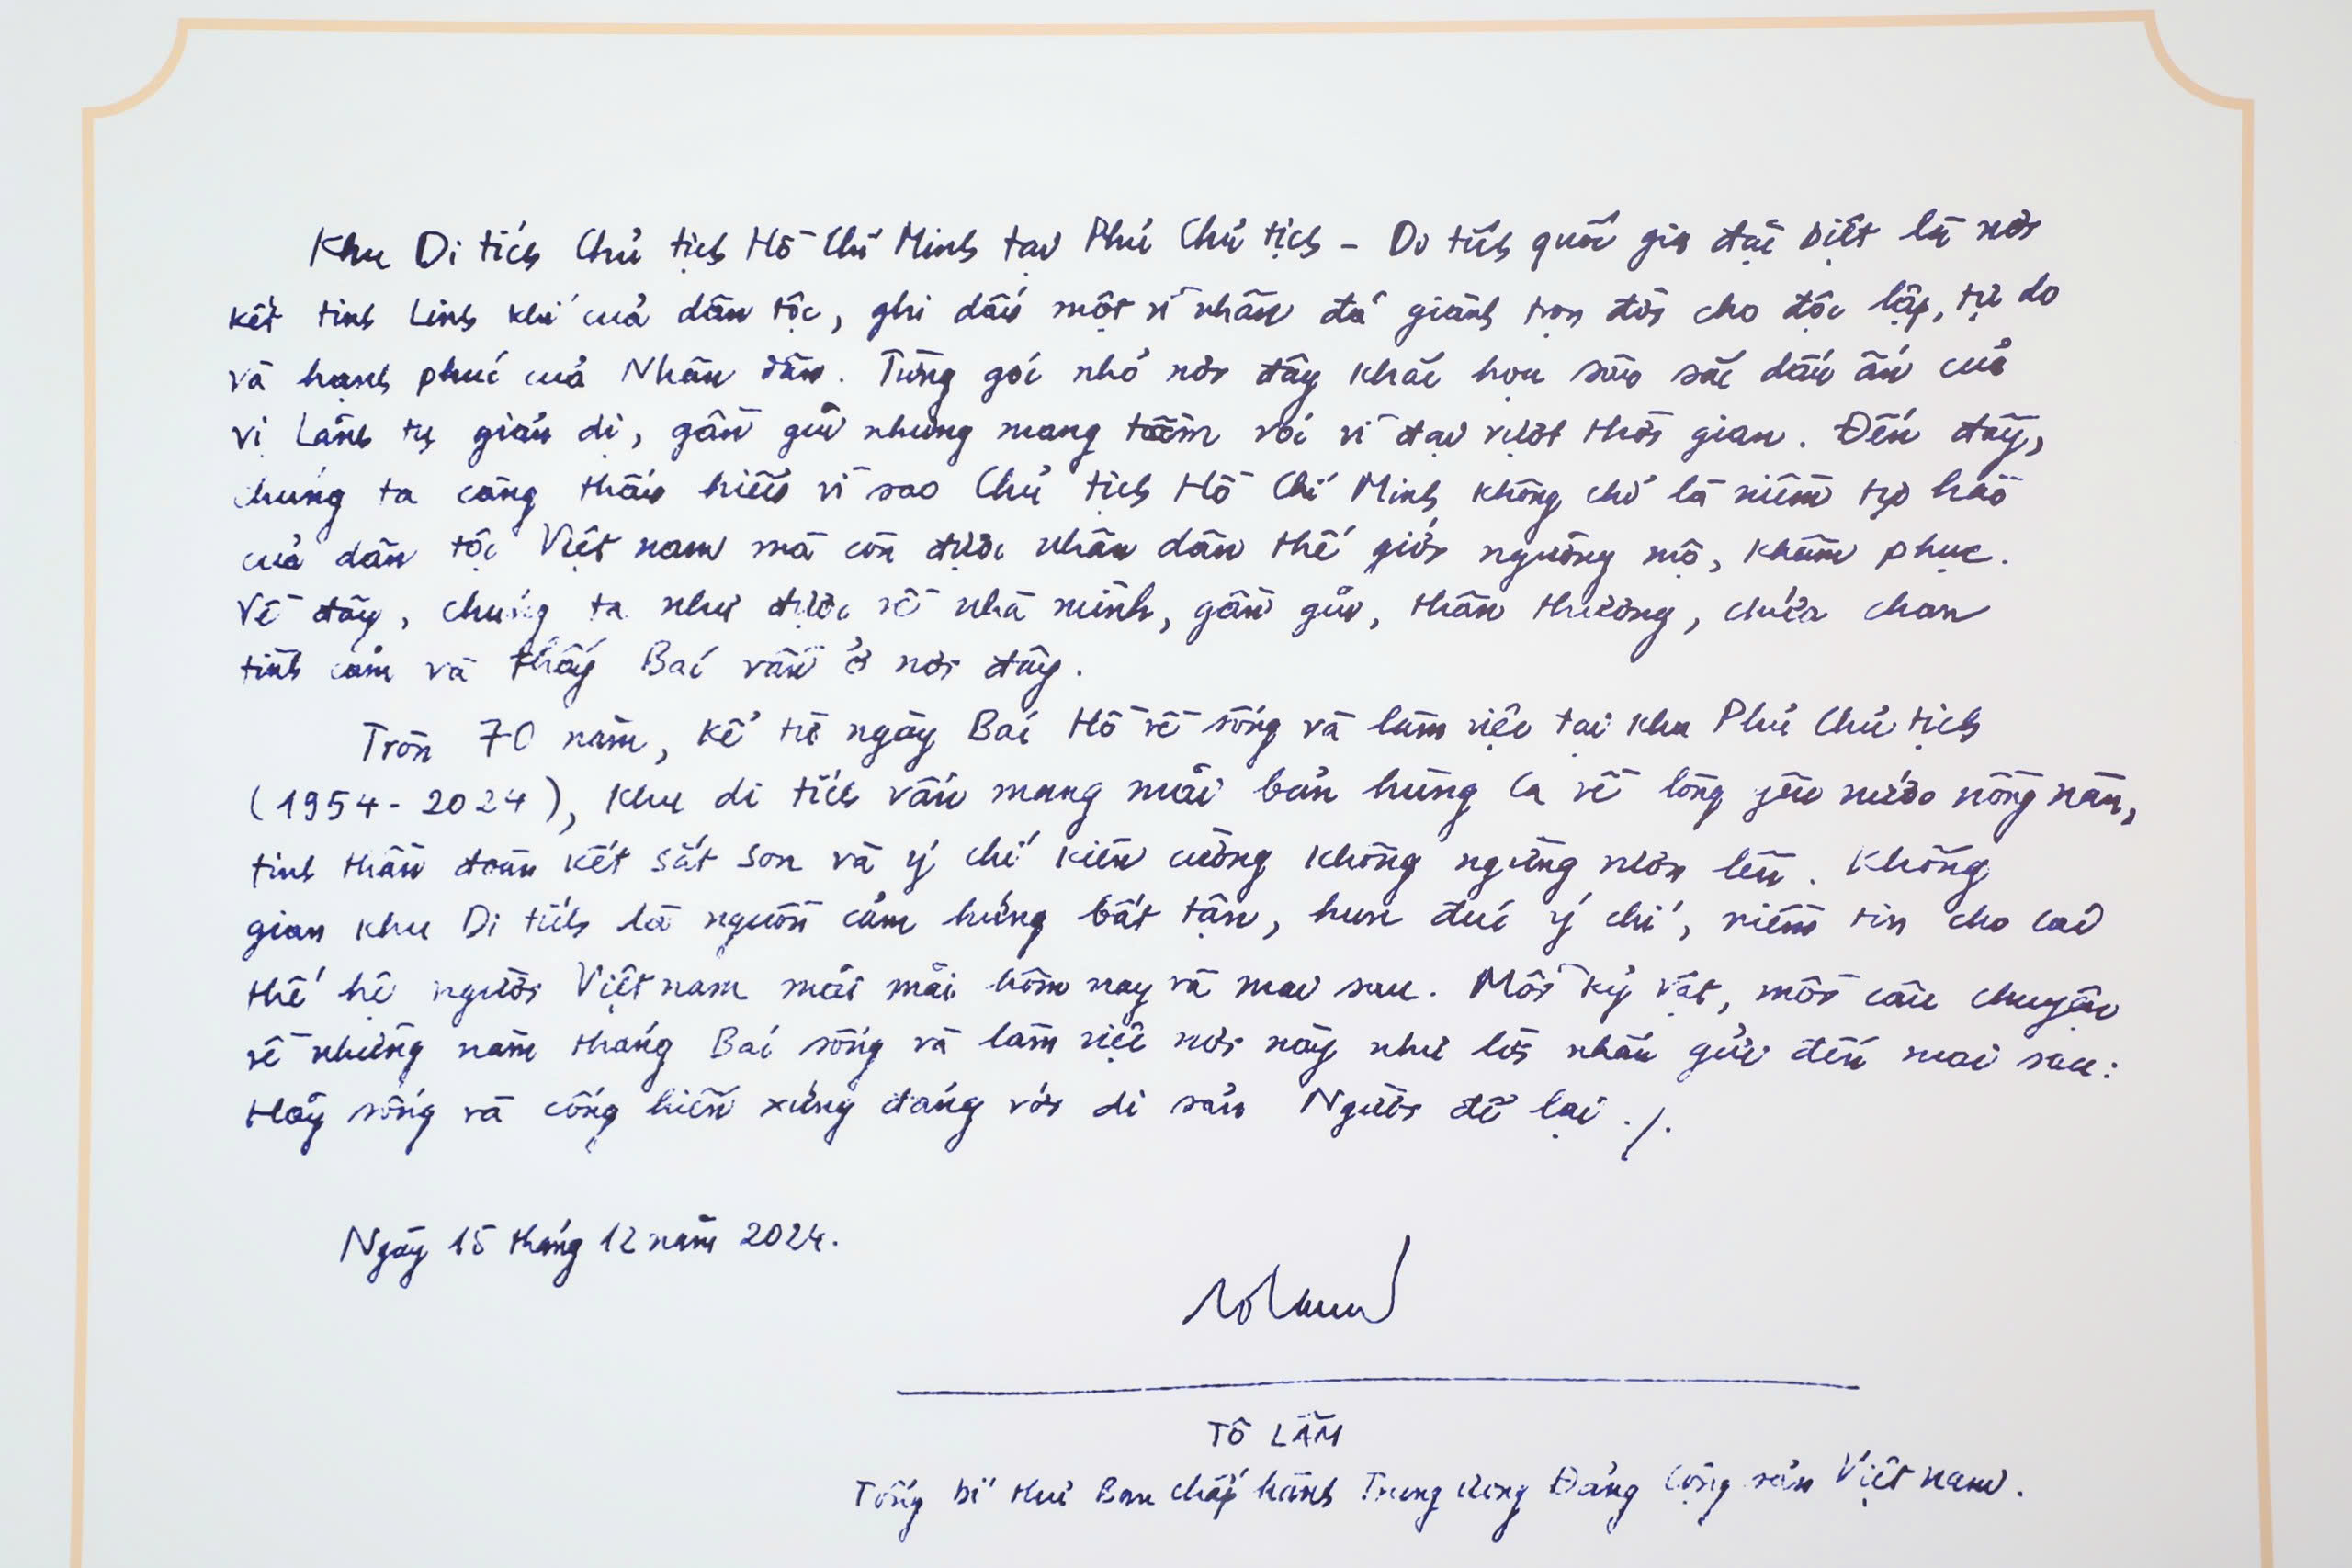 Khu Di tích Chủ tịch Hồ Chí Minh tại Phủ Chủ tịch - Di tích quốc gia đặc biệt là nơi
kết tinh linh khí của dân tộc, ghi dấu một vĩ nhân đã giành trọn đời cho độc lập, tự do
và hạnh phúc của Nhân dân. Từng góc nhỏ nơi đây khắc họa sâu sắc dấu ấn của
vị Lãnh tụ giản dị, gần gũi nhưng mang tầm vóc vĩ đại vượt thời gian. Đến đây,
chúng ta càng thấu hiểu vì sao Chủ tịch Hồ Chí Minh không chỉ là niềm tự hào
của dân tộc Việt nam mà còn được nhân dân thế giới ngưỡng mộ, khâm phục.
Về đây, chúng ta như được về nhà mình, gần gũi, thân thương, chứa chan
tình cảm và thấy Bác vẫn ở nơi đây.
Tròn 70 năm, kể từ ngày Bác Hồ về sống và làm việc tại khu Phủ Chủ tịch
(1954- 2024), khu di tích vẫn mang mãi bản hùng ca về lòng yêu nước nồng nàn,
tinh thần đoàn kết sắt son và ý chí kiên cường không ngừng vươn lên. Không
gian khu Di tích là nguồn cảm hứng bất tận, hun đúc ý chí, niềm tin cho các
thế hệ người Việt nam mãi mãi hôm nay và mai sau. Mỗi kỷ vật, mỗi câu chuyện
về những năm tháng Bác sống và làm việc nơi này như lời nhắn gửi đến mai sau:
Hãy sống và cống hiến xứng đáng với di sản Người để lại ./.
Ngày 15 tháng 12 năm 2024.
TÔ LÂM
Tổng bí thư Ban chấp hành Trung ương Đảng Cộng sản Việt nam.